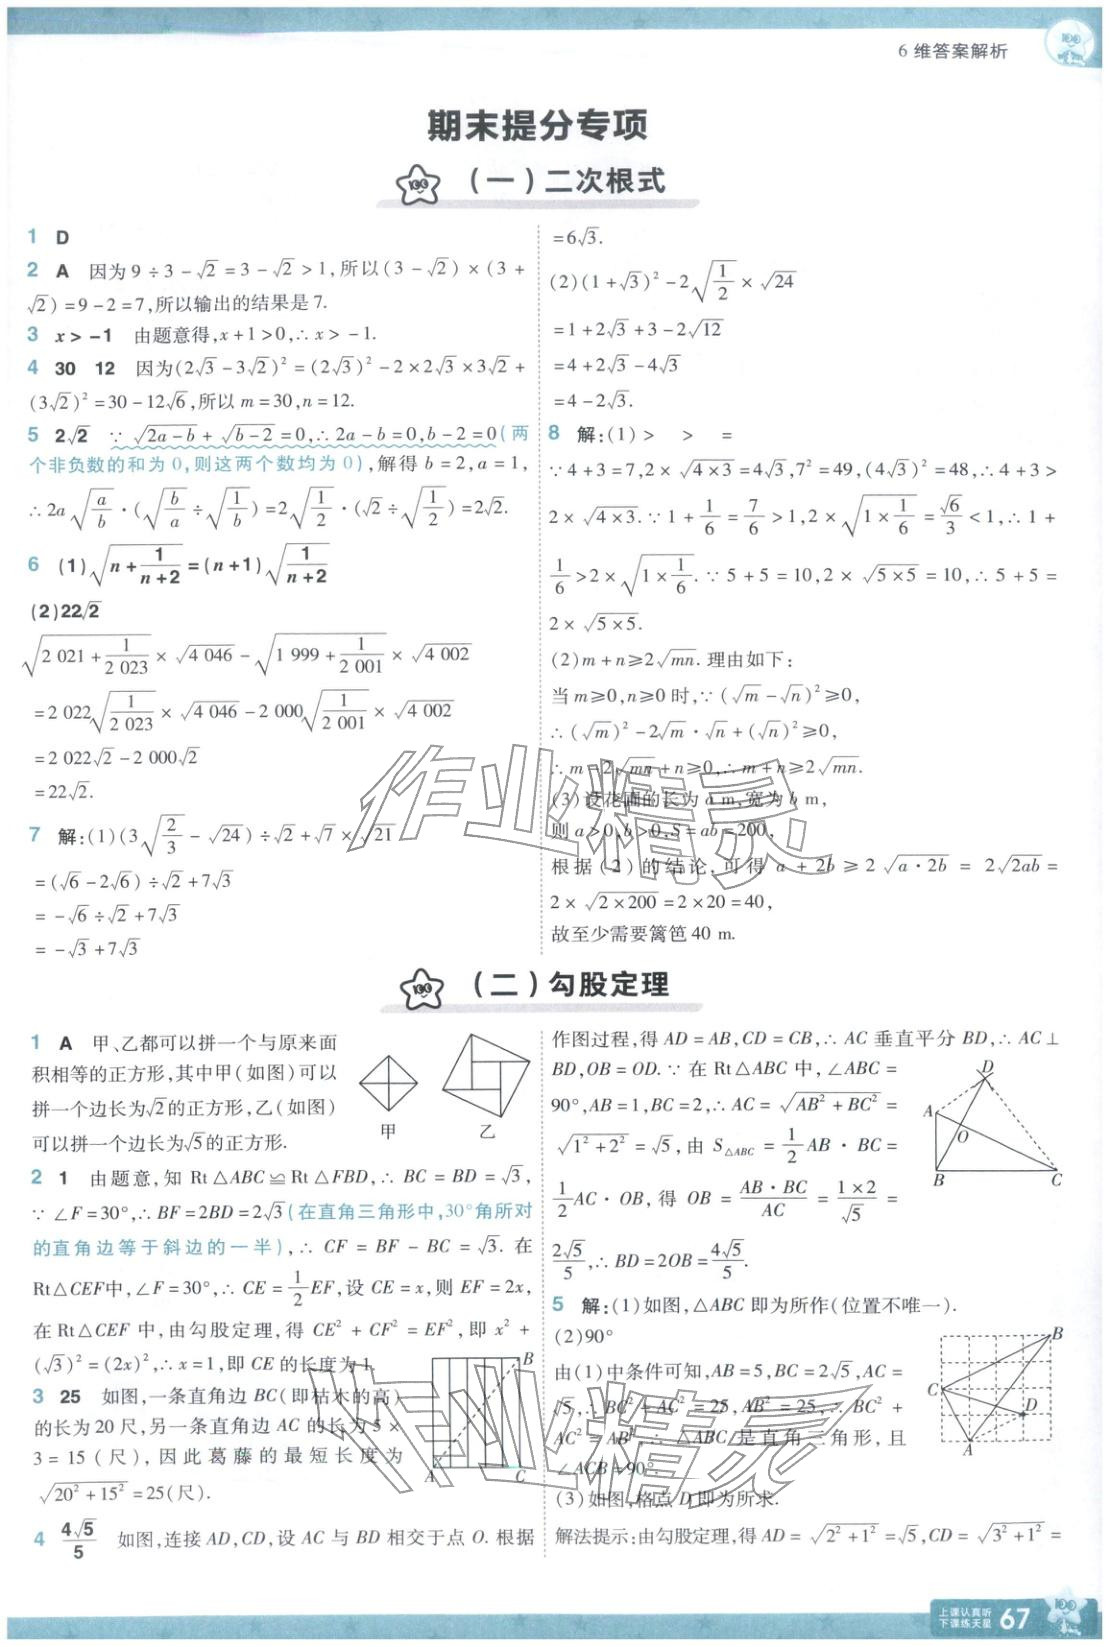 6 维答案解析
期末提分专项
(一)二次根式
1 D
2 A 因为 9÷3-√2=3-√2>1,所以(3-√2)×(3+
√2)=9-2=7,所以输出的结果是 7.
3 x>-1 由题意得,x+1>0,∴x>-1.
4 30 12 因为(2√3-3√2)²=(2√3)²-2×2√3×3√2+
(3√2)²=30-12√6,所以 m=30,n=12.
5 2√2 ∵√(2a-b)+√(b-2)=0,∴2a-b=0,b-2=0(两
个非负数的和为 0,则这两个数均为 0),解得 b=2,a=1,
∴2a√(a/b)·(√(b/a)÷√(1/b))=2√(1/2)·(√2÷√(1/2))=2√2.
6 (1)√(n+1/(n+2))=(n+1)√(1/(n+2))
(2)22√2
√(2 021+1/2 023)×√(4 046)-√(1 999+1/2 001)×√(4 002)
=2 022√(1/2 023)×√(4 046)-2 000√(1/2 001)×√(4 002)
=2 022√2-2 000√2
=22√2.
7 解:(1)(3√(2/3)-√24)÷√2+√7×√21
=(√6-2√6)÷√2+7√3
=-√6÷√2+7√3
=-√3+7√3
=6√3.
(2)(1+√3)²-2√(1/2)×√24
=1+2√3+3-2√12
=4+2√3-4√3
=4-2√3.
8 解:(1)> > =
∵4+3=7,2×√(4×3)=4√3,7²=49,(4√3)²=48,∴4+3>
2×√(4×3).∵1+1/6=7/6>1,2×√(1×1/6)=√6/3<1,∴1+
1/6>2×√(1×1/6).∵5+5=10,2×√(5×5)=10,∴5+5=
2×√(5×5).
(2)m+n≥2√(mn).理由如下:
当 m≥0,n≥0 时,∵(√m-√n)²≥0,
∴(√m)²-2√m·√n+(√n)²≥0,
∴m-2√(mn)+n≥0,∴m+n≥2√(mn).
(3)设花圃的长为 a m,宽为 b m,
则 a>0,b>0,S=ab=200,
根据(2)的结论,可得 a+2b≥2√(a·2b)=2√(2ab)=
2×√(2×200)=2×20=40,
故至少需要篱笆 40 m.
(二)勾股定理
1 A 甲、乙都可以拼一个与原来面
积相等的正方形,其中甲(如图)可以
拼一个边长为√2的正方形,乙(如图)
可以拼一个边长为√5的正方形.
甲 乙
2 1 由题意,知 Rt△ABC≌Rt△FBD,∴BC=BD=√3,
∵∠F=30°,∴BF=2BD=2√3(在直角三角形中,30°角所对
的直角边等于斜边的一半),∴CF=BF-BC=√3. 在
Rt△CEF中,∠F=30°,∴CE=1/2EF,设 CE=x,则 EF=2x,
在 Rt△CEF 中,由勾股定理,得 CE²+CF²=EF²,即 x²+
(√3)²=(2x)²,∴x=1,即 CE 的长度为 1.
3 25 如图,一条直角边 BC(即枯木的高)
的长为 20 尺,另一条直角边 AC 的长为 5×
3=15(尺),因此葛藤的最短长度为
√(20²+15²)=25(尺).
B
A C
4 4√5/5 如图,连接 AD,CD,设 AC 与 BD 相交于点 O. 根据
作图过程,得 AD=AB,CD=CB,∴AC 垂直平分 BD,∴AC⊥
BD,OB=OD.∵在 Rt△ABC 中,∠ABC=
90°,AB=1,BC=2,∴AC=√(AB²+BC²)=
√(1²+2²)=√5,由 S△ABC=1/2AB·BC=
1/2AC·OB,得 OB=AB·BC/AC=1×2/√5=
2√5/5,∴BD=2OB=4√5/5.
D
A
O
B C
5 解:(1)如图,△ABC 即为所作(位置不唯一).
(2)90°
由(1)中条件可知,AB=5,BC=2√5,AC=
√5,∴BC²+AC²=25,AB²=25,∴BC²+
AC²=AB²,∴△ABC 是直角三角形,且
∠ACB=90°.
(3)如图,格点 D 即为所求.
B
C
D
A
解法提示:由勾股定理,得 AD=√(2²+1²)=√5,CD=√(3²+1²)=
作业精灵
作业精灵
上课认真听
下课练天星
67